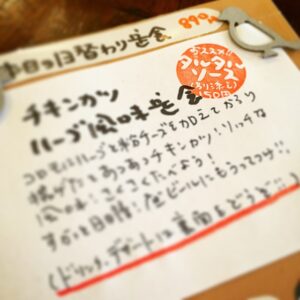 本日の日替わり定食
890円
おススメ!!
タルタル
ソース
150円
チキンカツ
ハーブ風味定食
コロモにハーブと粉チーズを加えてかろり
揚げたあつあつチキンカツ!リッチな
風味に さくさくたべよう!
すかっと日時に 生ビールにもうってつけ!!
(ドリンク、デザートは裏面をどうぞ!!)